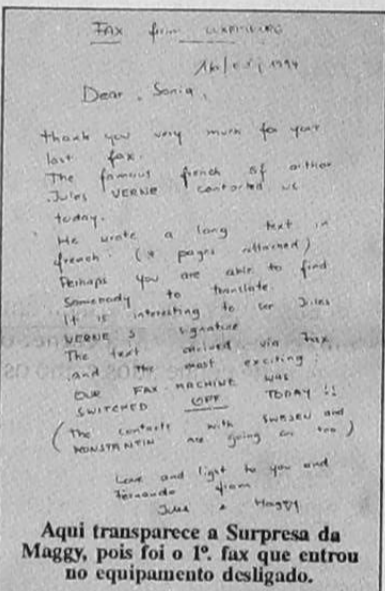 FAX from LUXEMBURG
1994
Dear Sonia,
thank you very much for your
last fax.
The famous french sf author
Jules VERNE contacted us
today.
He wrote a long text in
french (* pages attached)
Perhaps you are able to find
somebody to translate.
It is interesting to see Jules
VERNE'S signature
The text arrived via fax
and the most exciting:
OUR FAX-MACHINE WAS
SWITCHED OFF TODAY !!
(The contacts with SWEJEN and
KONSTANTIN are going on too)
Love and light to you and
Fernando from
Jules + Maggy
Aqui transparece a Surpresa da
Maggy, pois foi o 1º. fax que entrou
no equipamento desligado.